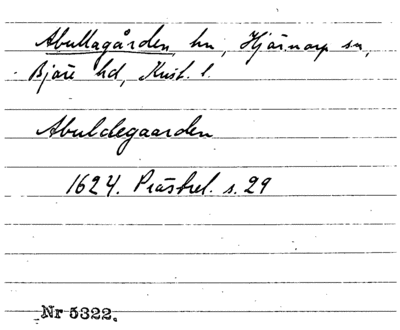 Abullagården, hn, Hjärnarp sn,
Bjäre hd, Krist. l.
Abuldegaarden
1624. Prästrel. s. 29
Nr 5322.